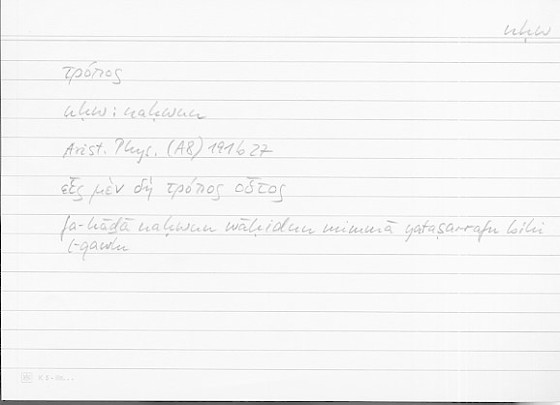 nḥw
τρόπος
nḥw: naḥwun
Arist. Phys. (A8) 191b27
εἷς μὲν δὴ τρόπος οὗτος
fa-hāḏā naḥwun wāḥidun mimmā yataṣarrafu bihi
l-qawlu